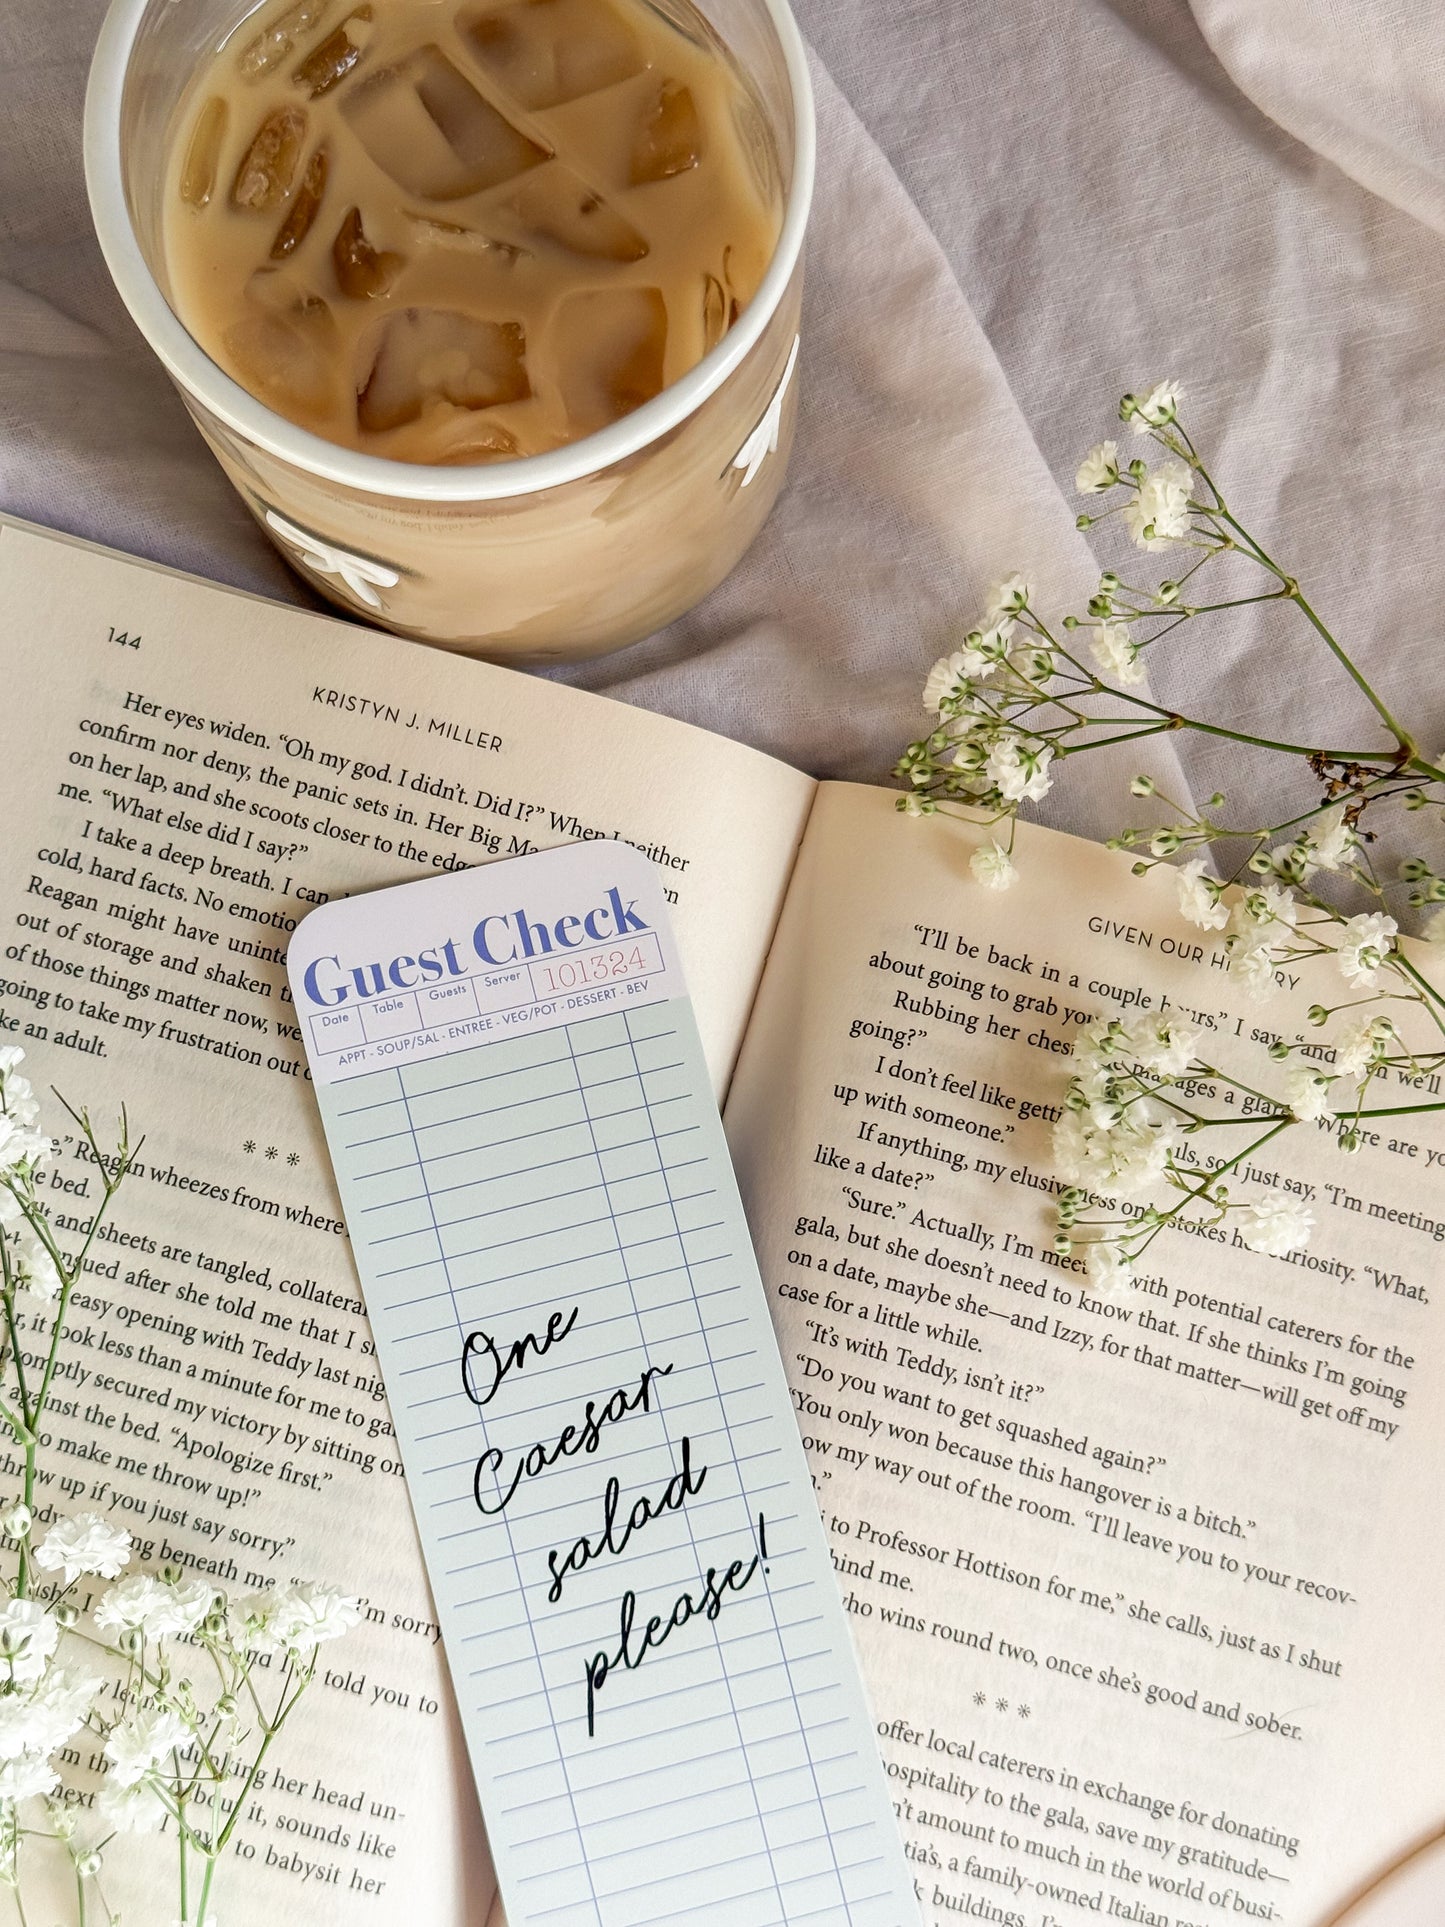 144
KRISTYN J. MILLER
Her eyes widen. “Oh my god. I didn’t. Did I?” When I neither
confirm nor deny, the panic sets in. Her Big Ma
on her lap, and she scoots closer to the edge
me. “What else did I say?”
I take a deep breath. I can
cold, hard facts. No emotio
Reagan might have uninte
out of storage and shaken
of those things matter now, we
going to take my frustration out
ke an adult.
***
Reagan wheezes from where
he bed.
and sheets are tangled, collateral
ensued after she told me that I
easy opening with Teddy last nig
it took less than a minute for me to ga
promptly secured my victory by sitting on
against the bed. “Apologize first.”
to make me throw up!”
throw up if you just say sorry.”
beneath me.
I’m sorry
told you to
dunking her head un-
it, sounds like
next
to babysit her
Guest Check
Date Table Guests Server 101324
APPT - SOUP/SAL - ENTREE - VEG/POT - DESSERT - BEV
One
Caesar
salad
please!
GIVEN OUR HISTORY
“I’ll be back in a couple hours,” I say, “and we’ll
about going to grab
Rubbing her manages a glare. “Where are yo
going?”
I don’t feel like getti so I just say, “I’m meeting
up with someone.”
If anything, my elusiveness only stokes her curiosity. “What,
like a date?”
“Sure.” Actually, I’m meeting with potential caterers for the
gala, but she doesn’t need to know that. If she thinks I’m going
on a date, maybe she—and Izzy, for that matter—will get off my
case for a little while.
“It’s with Teddy, isn’t it?”
“Do you want to get squashed again?”
“You only won because this hangover is a bitch.”
my way out of the room. “I’ll leave you to your recov-
to Professor Hottison for me,” she calls, just as I shut
hind me.
who wins round two, once she’s good and sober.
***
offer local caterers in exchange for donating
hospitality to the gala, save my gratitude—
n’t amount to much in the world of busi-
tia’s, a family-owned Italian
buildings.